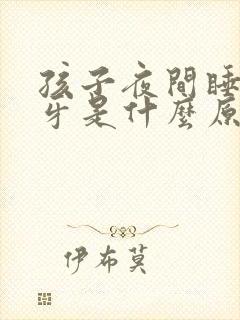 孩子夜間睡
牙是什麼原
伊布莫